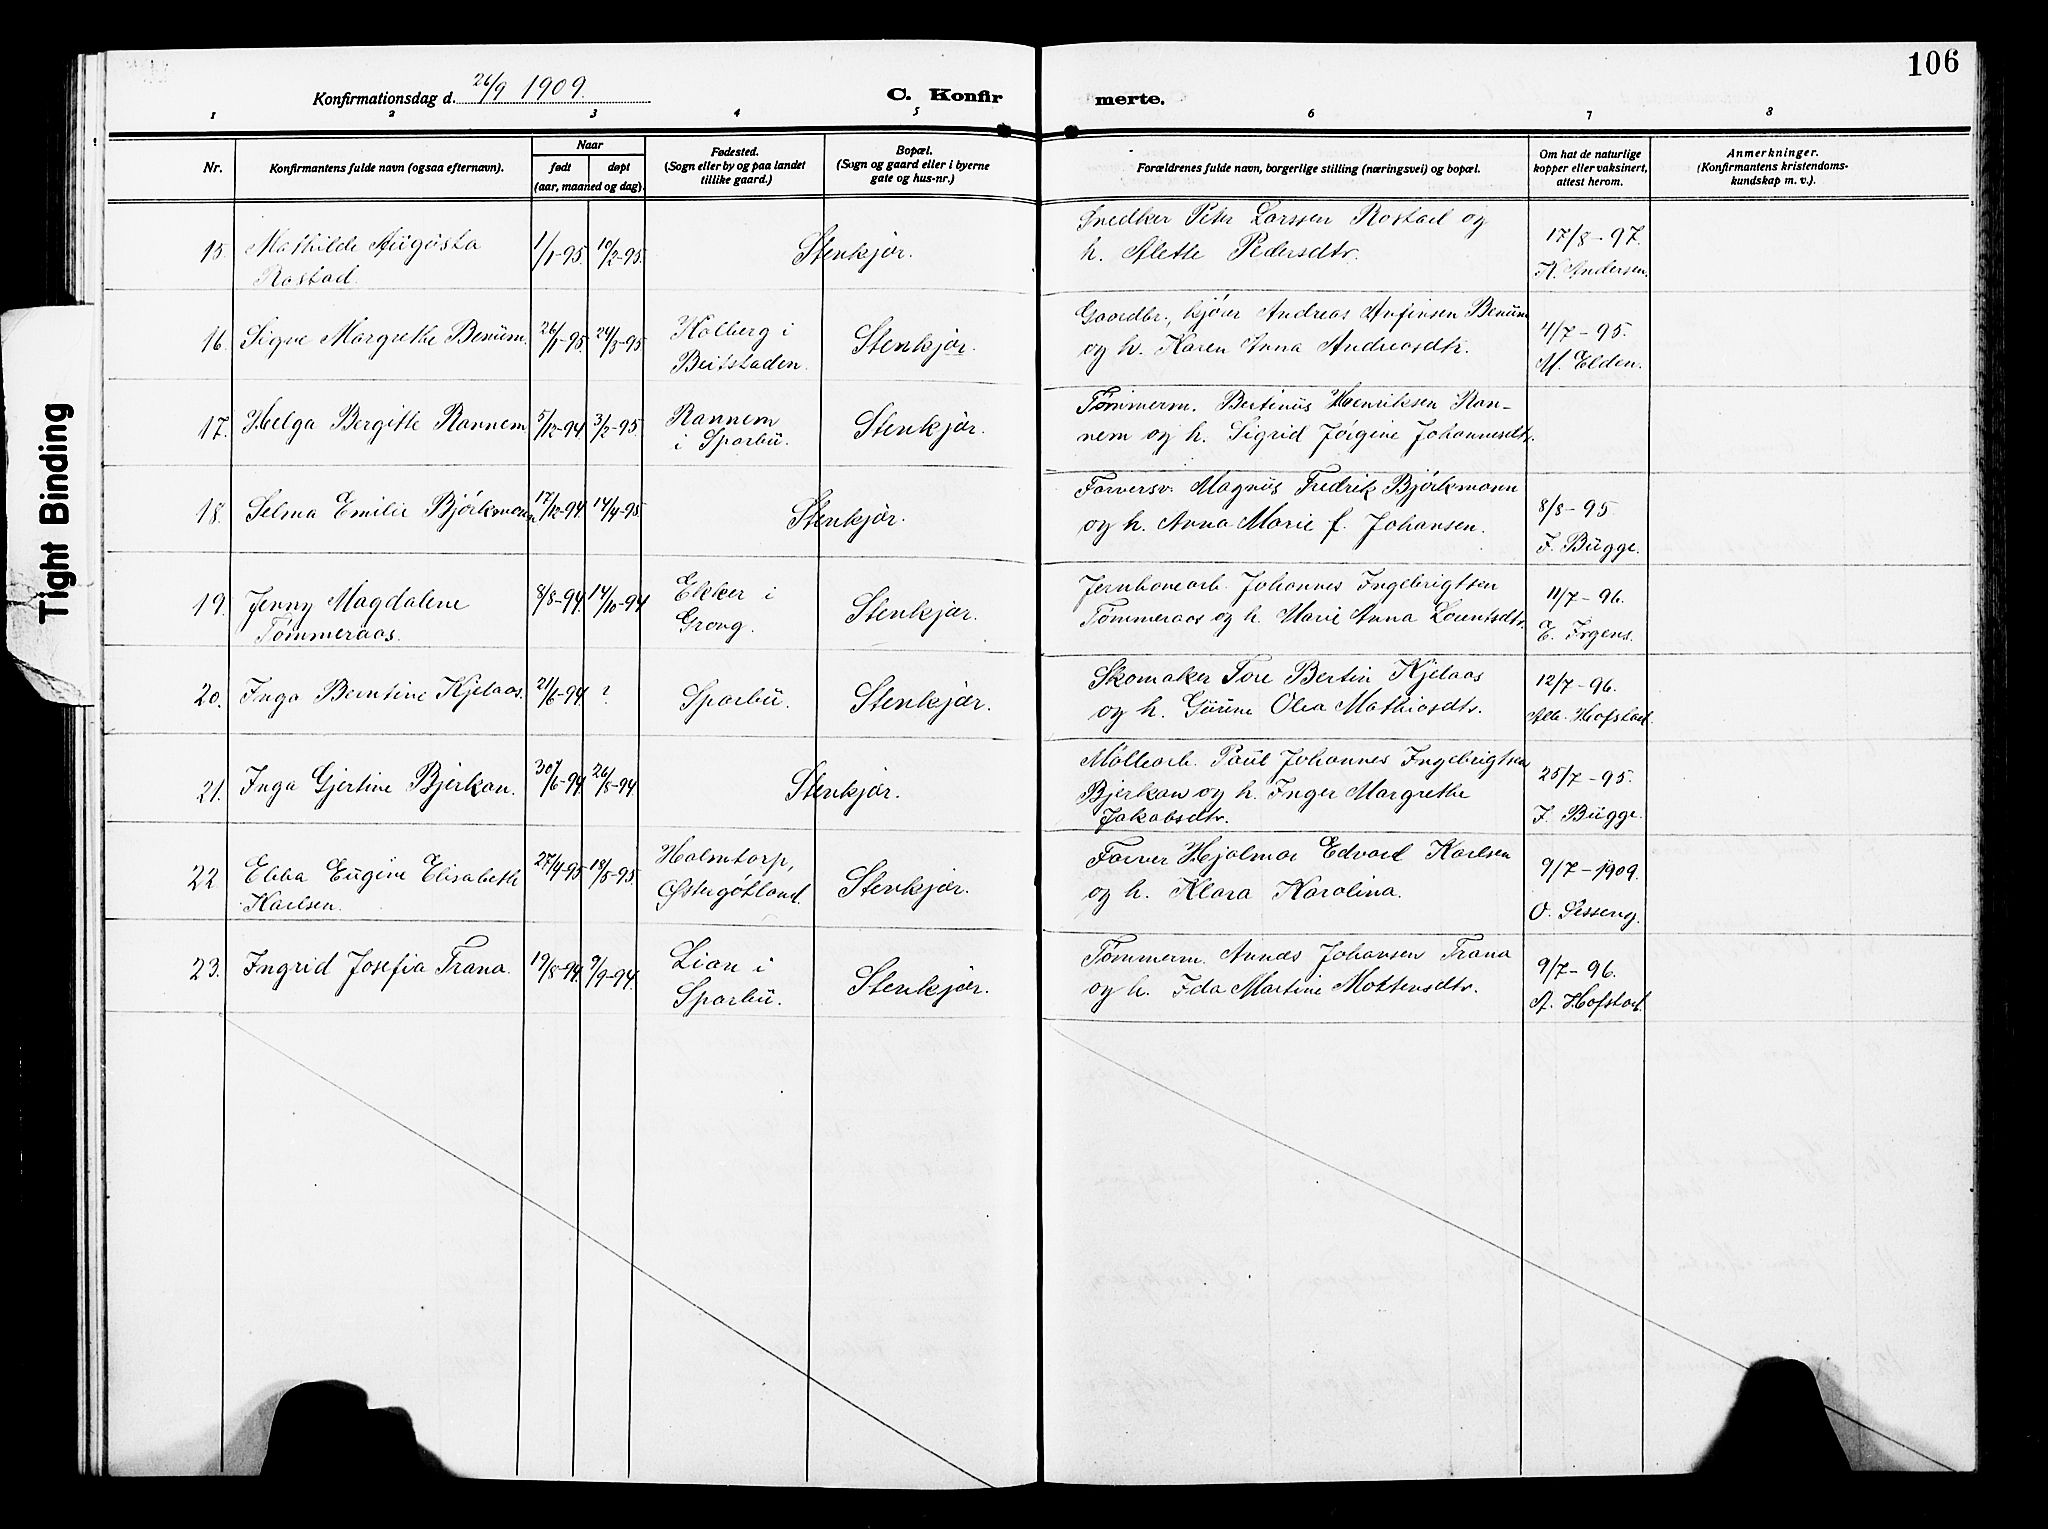 106
Konfirmationsdag d. 26/9 1909.
C. Konfir merte.
1 2 3 4 5 6 7 8
Nr.
Konfirmantens fulde navn (ogsaa efternavn).
Naar
født
døpt
(aar, maaned og dag).
Fødested.
(Sogn eller by og paa landet
tillike gaard.)
Bopæl.
(Sogn og gaard eller i byerne
gate og hus-nr.)
Forældrenes fulde navn, borgerlige stilling (næringsvei) og bopæl.
Om hat de naturlige
kopper eller vaksinert,
attest herom.
Anmerkninger.
(Konfirmantens kristendoms-
kundskap m. v.).
15. Mathilde Augusta 1/1-95. 10/2-95. Stenkjær. Snedker Peter Larssen Rostad og 17/8-97.
Rostad. h. Alette Pedersdtr. K. Andersen.
16. Signe Margrethe Benum. 26/1-95. 24/3-95 Holberg i Stenkjær. Gaardbr., kjører Andreas Anfinsen Benum 4/7-95.
Beitstaden. og h. Karen Anna Andreasdtr. M. Elden.
17. Helga Bergitte Rannem 5/12-94. 3/2-95. Rannem Stenkjær. Tømmerm. Bertinus Henriksen Ran-
i Sparbu. nem og h. Sigrid Jørgine Johannesdtr.
18. Selma Emilie Björkmann 17/12-94. 14/4-95. Stenkjær. Farversv. Magnus Fredrik Björkmann 8/8-95.
og h. Anna Marie f. Johansen. F. Bugge.
19. Jenny Magdalene 8/8-94. 14/10-94 Ekker i Stenkjær. Jernbanearb. Johannes Ingebrigtsen 11/7-96.
Tømmeraas. Grong. Tømmeraas og h. Marie Anna Lorentsdtr. E. Irgens.
20. Inga Berntine Kjelaas. 21/6-94. ? Sparbu. Stenkjær. Skomaker Tore Bertin Kjelaas 12/7-96.
og h. Gurine Olea Mathiasdtr. Alb. Hofstad.
21. Inga Gjertine Bjerkan. 30/6-94. 26/8-94. Stenkjær. Møllearb. Paul Johannes Ingebrigtsen 25/7-95.
Bjerkan og h. Inger Margrethe
Jakobsdtr. F. Bugge.
22 Ebba Eugine Elisabeth 27/4-95 18/5-95. Holmtorp, Stenkjær. Farver Hjalmar Edvard Karlsen 9/7-1909.
Karlsen. Østergötland. og h. Klara Karolina. O. Sesseng.
23. Ingrid Josefia Trana. 19/8-94. 9/9-94. Lian i Stenkjær. Tømmerm. Annæs Johansen Trana 9/7-96.
Sparbu. og h. Ida Martine Mortensdtr. A. Hofstad.
Tight Binding